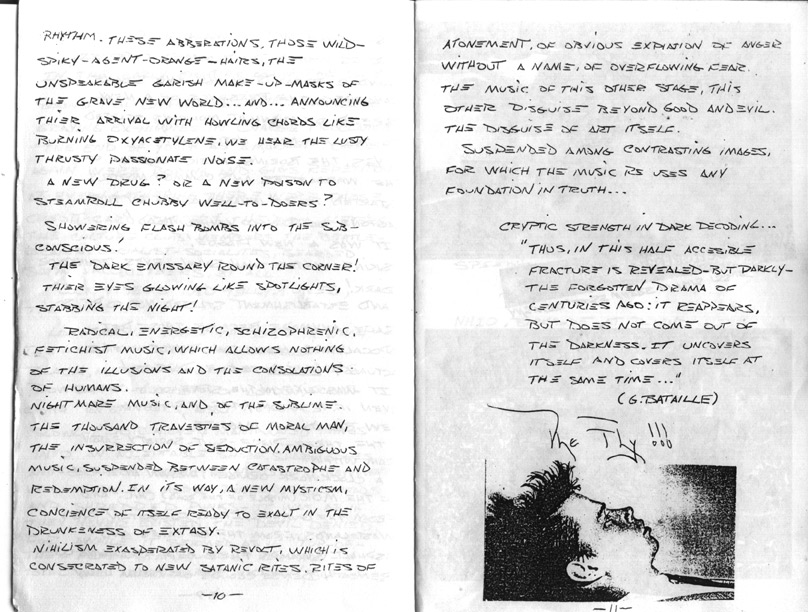 RHYTHM. THESE ABBERATIONS, THOSE WILD-
SPIKY-AGENT-ORANGE-HAIRS, THE
UNSPEAKABLE GARISH MAKE-UP-MASKS OF
THE GRAVE NEW WORLD... AND... ANNOUNCING
THIER ARRIVAL WITH HOWLING CHORDS LIKE
BURNING OXYACETYLENE, WE HEAR THE LUSTY
THRUSTY PASSIONATE NOISE.
A NEW DRUG? OR A NEW POISON TO
STEAMROLL CHUBBY WELL-TO-DOERS?
SHOWERING FLASH BOMBS INTO THE SUB-
CONSCIOUS!
THE DARK EMISSARY ROUND THE CORNER!
THIER EYES GLOWING LIKE SPOTLIGHTS,
STABBING THE NIGHT!
RADICAL, ENERGETIC, SCHIZOPHRENIC,
FETICHIST MUSIC, WHICH ALLOWS NOTHING
OF THE ILLUSIONS AND THE CONSOLATIONS
OF HUMANS.
NIGHTMARE MUSIC, AND, OF THE SUBLIME.
THE THOUSAND TRAVESTIES OF MORAL MAN,
THE INSURRECTION OF SEDUCTION. AMBIGUOUS
MUSIC, SUSPENDED BETWEEN CATASTROPHE AND
REDEMPTION. IN IT'S WAY, A NEW MYSTICSM,
CONCIENCE OF ITSELF READY TO EXALT IN THE
DRUNKENESS OF EXTASY.
NIHILISM EXASPERATED BY REVOLT, WHICH IS
CONSECRATED TO NEW SATANIC RITES. RITES OF
-10-
ATONEMENT, OF OBVIOUS EXPIATION OF ANGER
WITHOUT A NAME, OF OVERFLOWING FEAR.
THE MUSIC OF THIS OTHER STAGE, THIS
OTHER DISGUISE BEYOND GOOD AND EVIL.
THE DISGUISE OF ART ITSELF.
SUSPENDED AMONG CONTRASTING IMAGES,
FOR WHICH THE MUSIC RE USES ANY
FOUNDATION IN TRUTH...
CRYPTIC STRENGTH IN DARK DECODING...
"THUS, IN THIS HALF ACCESIBLE
FRACTURE IS REVEALED-BUT DARKLY-
THE FORGOTTEN DRAMA OF
CENTURIES AGO: IT REAPPEARS,
BUT DOES NOT COME OUT OF
THE DARKNESS. IT UNCOVERS
ITSELF AND COVERS ITSELF AT
THE SAME TIME..."
(G. BATAILLE)
The Fly!!!
-11-